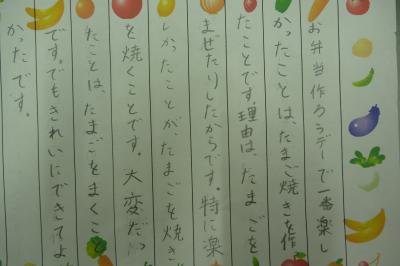 お弁当作ろうデーで一番楽し
かったことは、たまご焼きを作
たことです。理由は、たまごを
まぜたりしたからです。特に楽
しかったことが、たまごを焼き
を焼くことです。大変だっ
たことは、たまごをまくこ
です。でもきれいにできてよ
かったです。